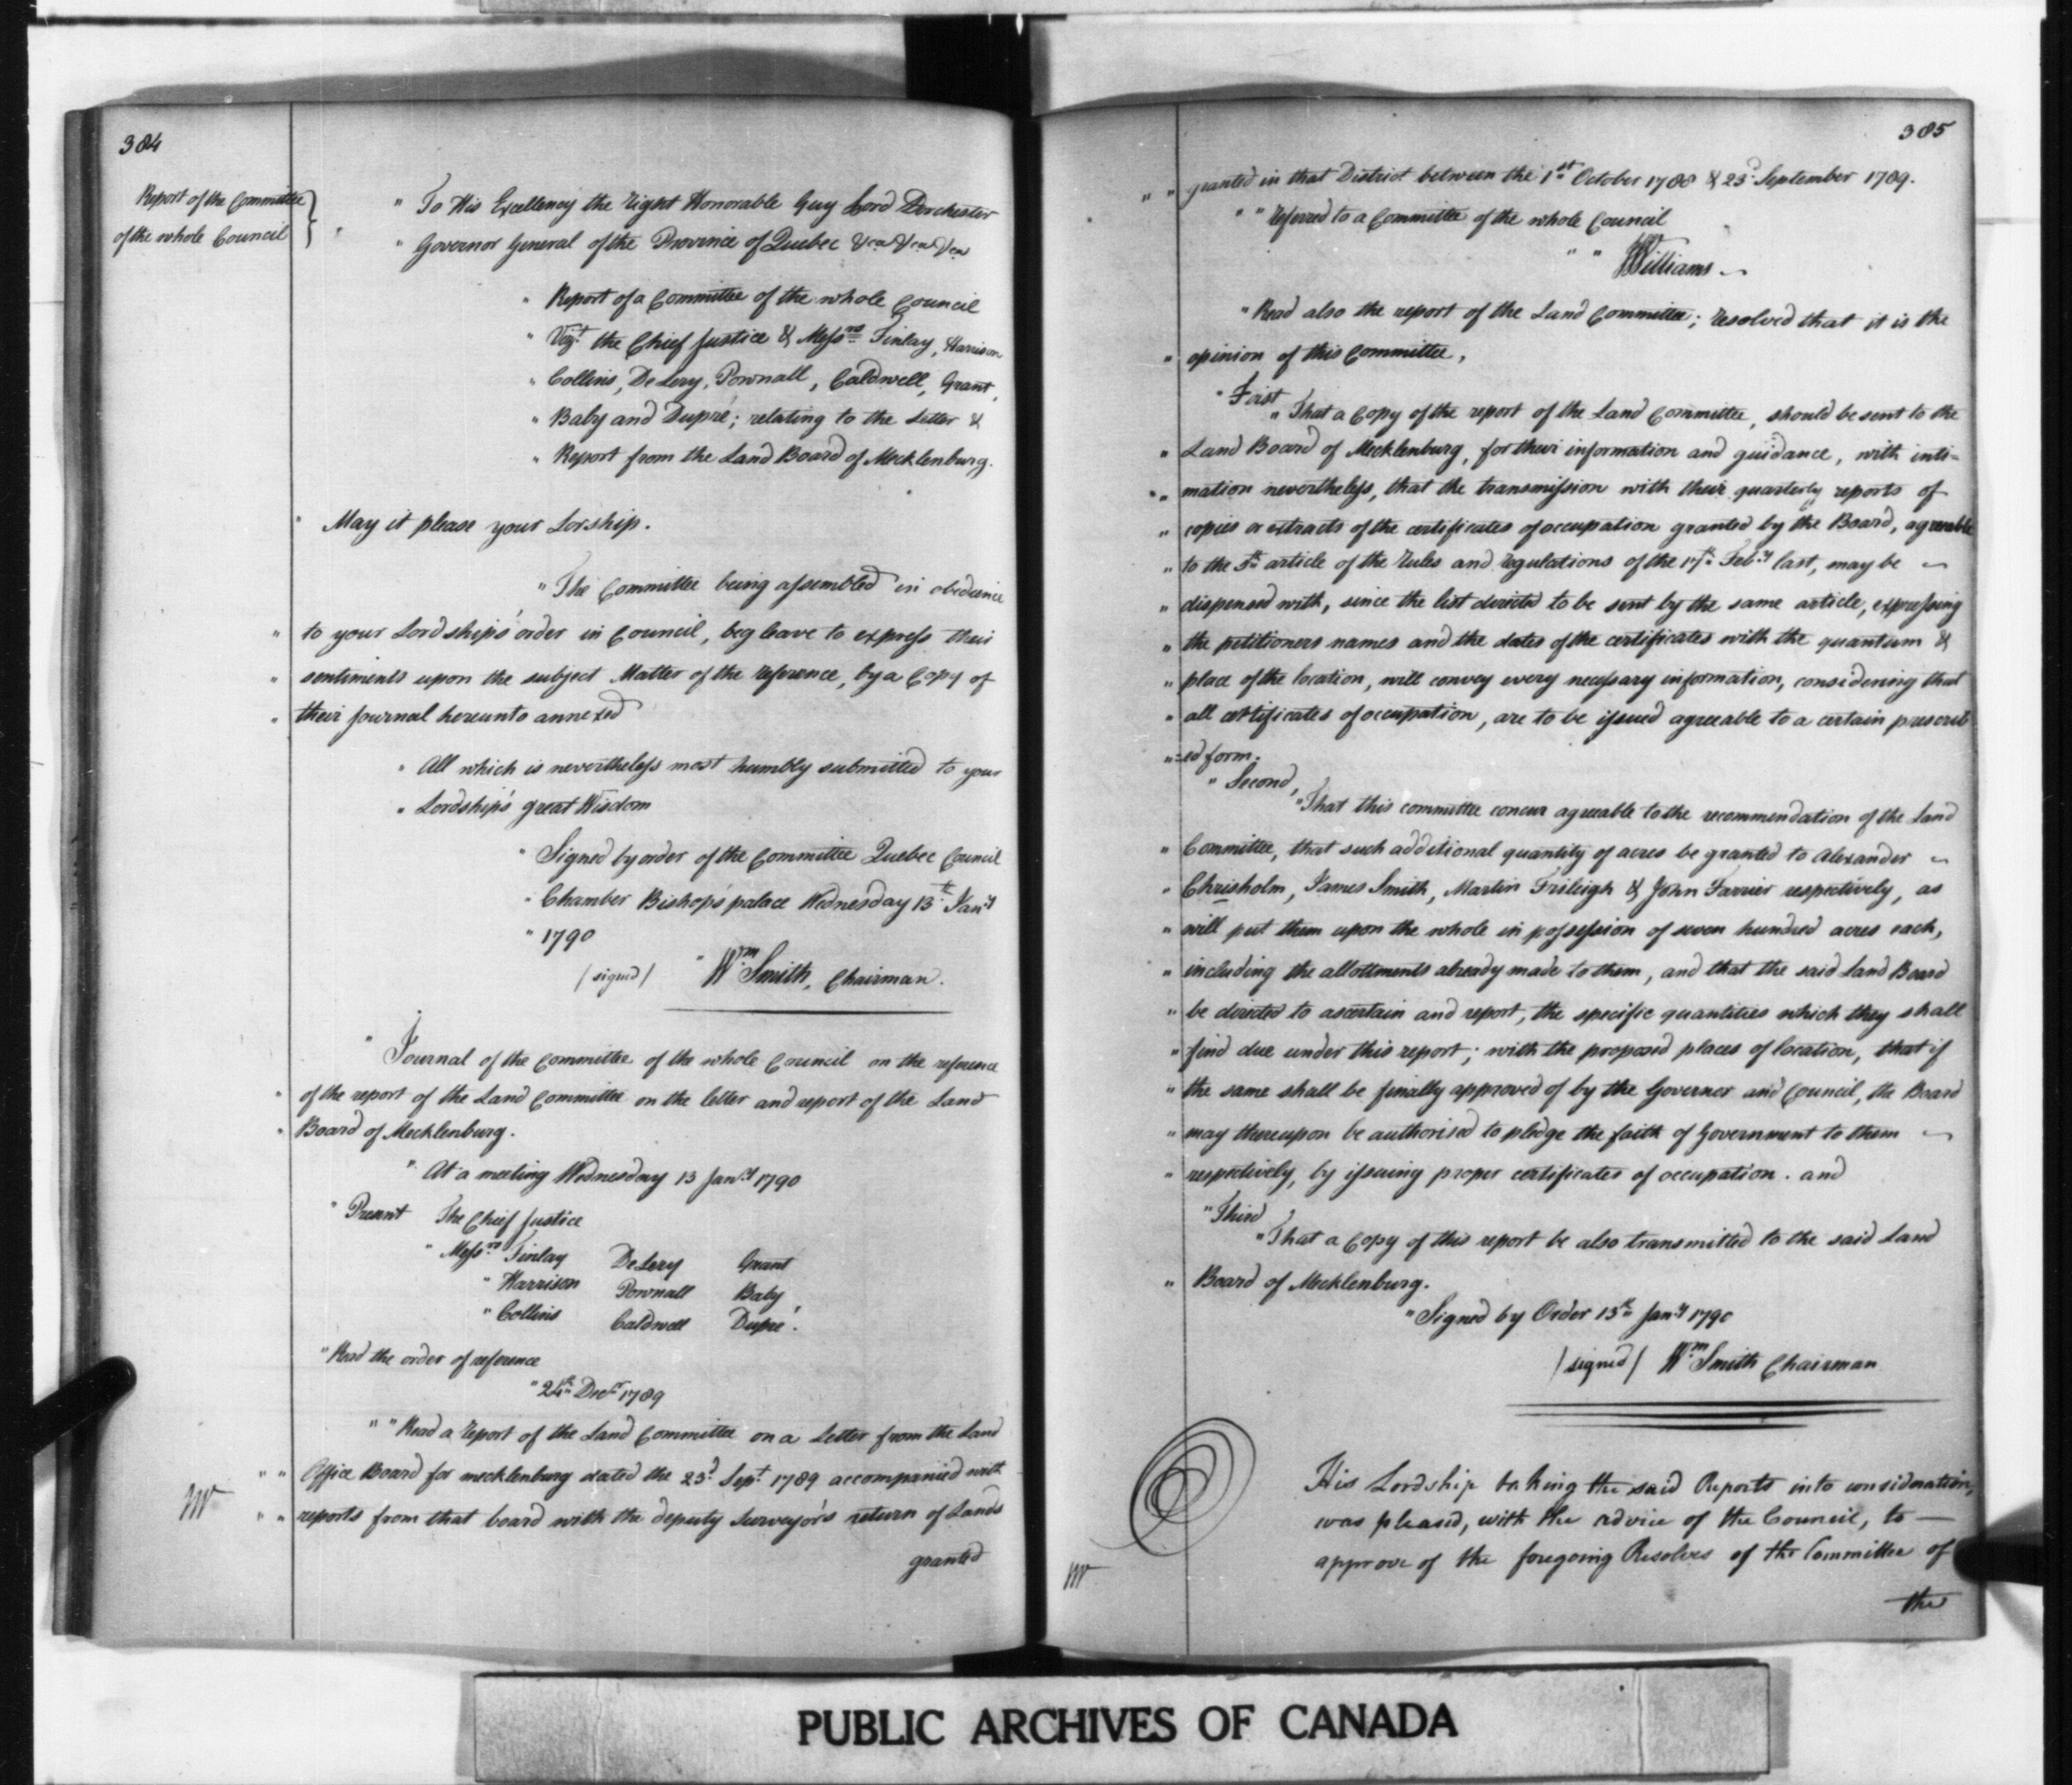 384
Report of the Committee
of the whole Council
" To His Excellency the Right Honorable Guy Lord Dorchester
" Governor General of the Province of Quebec &ca &ca &ca
" Report of a Committee of the whole Council
" Vizt the Chief Justice & Messrs Finlay, Harrison
" Collins, DeLery, Pownall, Caldwell, Grant,
" Baby and Dupré; relating to the Letter &
" Report from the Land Board of Mecklenburg.
" May it please your Lorship.
" The Committee being assembled in obedience
" to your Lordship's order in Council, beg leave to express their
" sentiments upon the subject Matter of the reference, by a Copy of
" their Journal hereunto annexed
" All which is nevertheless most humbly submitted to your
" Lordship's great Wisdom
" Signed by order of the Committee Quebec Council
" Chamber Bishop's palace Wednesday 13th Jany
" 1790
/signed/ " Wm Smith, Chairman.
" Journal of the Committee of the whole Council on the reference
" of the report of the Land Committee on the letter and report of the Land
" Board of Mecklenburg.
" At a meeting Wednesday 13 Jany 1790
" Present The Chief Justice
" Messrs Finlay DeLery Grant
" Harrison Pownall Baby
" Collins Caldwell Dupré.
" Read the order of reference
" 24th Decr 1789
" " Read a report of the Land Committee on a Letter from the Land
" " Office Board for mecklenburg dated the 23d Sept 1789 accompanied with
" " reports from that board with the deputy Surveyor's return of Lands
granted
385
" " granted in that District between the 1st October 1788 & 23d September 1789.
" " Referred to a Committee of the whole Council
" " JWilliams
" Read also the report of the Land Committee; resolved that it is the
" opinion of this Committee,
" First
" That a Copy of the report of the Land Committee, should be sent to the
" Land Board of Mecklenburg, for their information and guidance, with inti=
" mation nevertheless, that the transmission with their quarterly reports of
" copies or extracts of the certificates of occupation granted by the Board, agreeable
" to the 5th article of the Rules and regulations of the 17th Feby last, may be
" dispensed with, since the list directed to be sent by the same article, expressing
" the petitioners names and the dates of the certificates with the quantum &
" place of the location, will convey every necessary information, considering that
" all certificates of occupation, are to be issued agreeable to a certain prescrib
"=ed form.
" Second,
" That this committee concur agreeable to the recommendation of the Land
" Committee, that such additional quantity of acres be granted to Alexander
" Chrisholm, James Smith, Martin Frileigh & John Farrier respectively, as
" will put them upon the whole in possession of seven hundred acres each,
" including the allottments already made to them, and that the said Land Board
" be directed to ascertain and report, the specific quantities which they shall
" find due under this report; with the proposed places of location, that if
" the same shall be finally approved of by the Governor and Council, the Board
" may thereupon be authorised to pledge the faith of Government to them
" respectively, by issuing proper certificates of occupation. and
" Third
" That a Copy of this report be also transmitted to the said Land
" Board of Mecklenburg.
" Signed by Order 13th Jany 1790
/signed/ Wm Smith Chairman
His Lordship taking the said Reports into consideration,
was pleased, with the advice of the Council, to —
approve of the foregoing Resolves of the Committee of
the
PUBLIC ARCHIVES OF CANADA